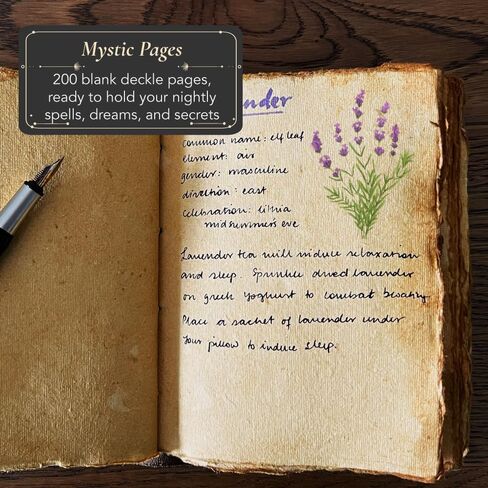 Mystic Pages
200 blank deckle pages,
ready to hold your nightly
spells, dreams, and secrets
nder
common name: elf leaf
element: air
gender: masculine
direction: east
celebration: lithia
midsummer's eve
Lavender tea will induce relaxation
and sleep. Sprinkle dried lavender
on greek yoghurt to combat
Place a sachet of lavender under
your pillow to induce sleep.